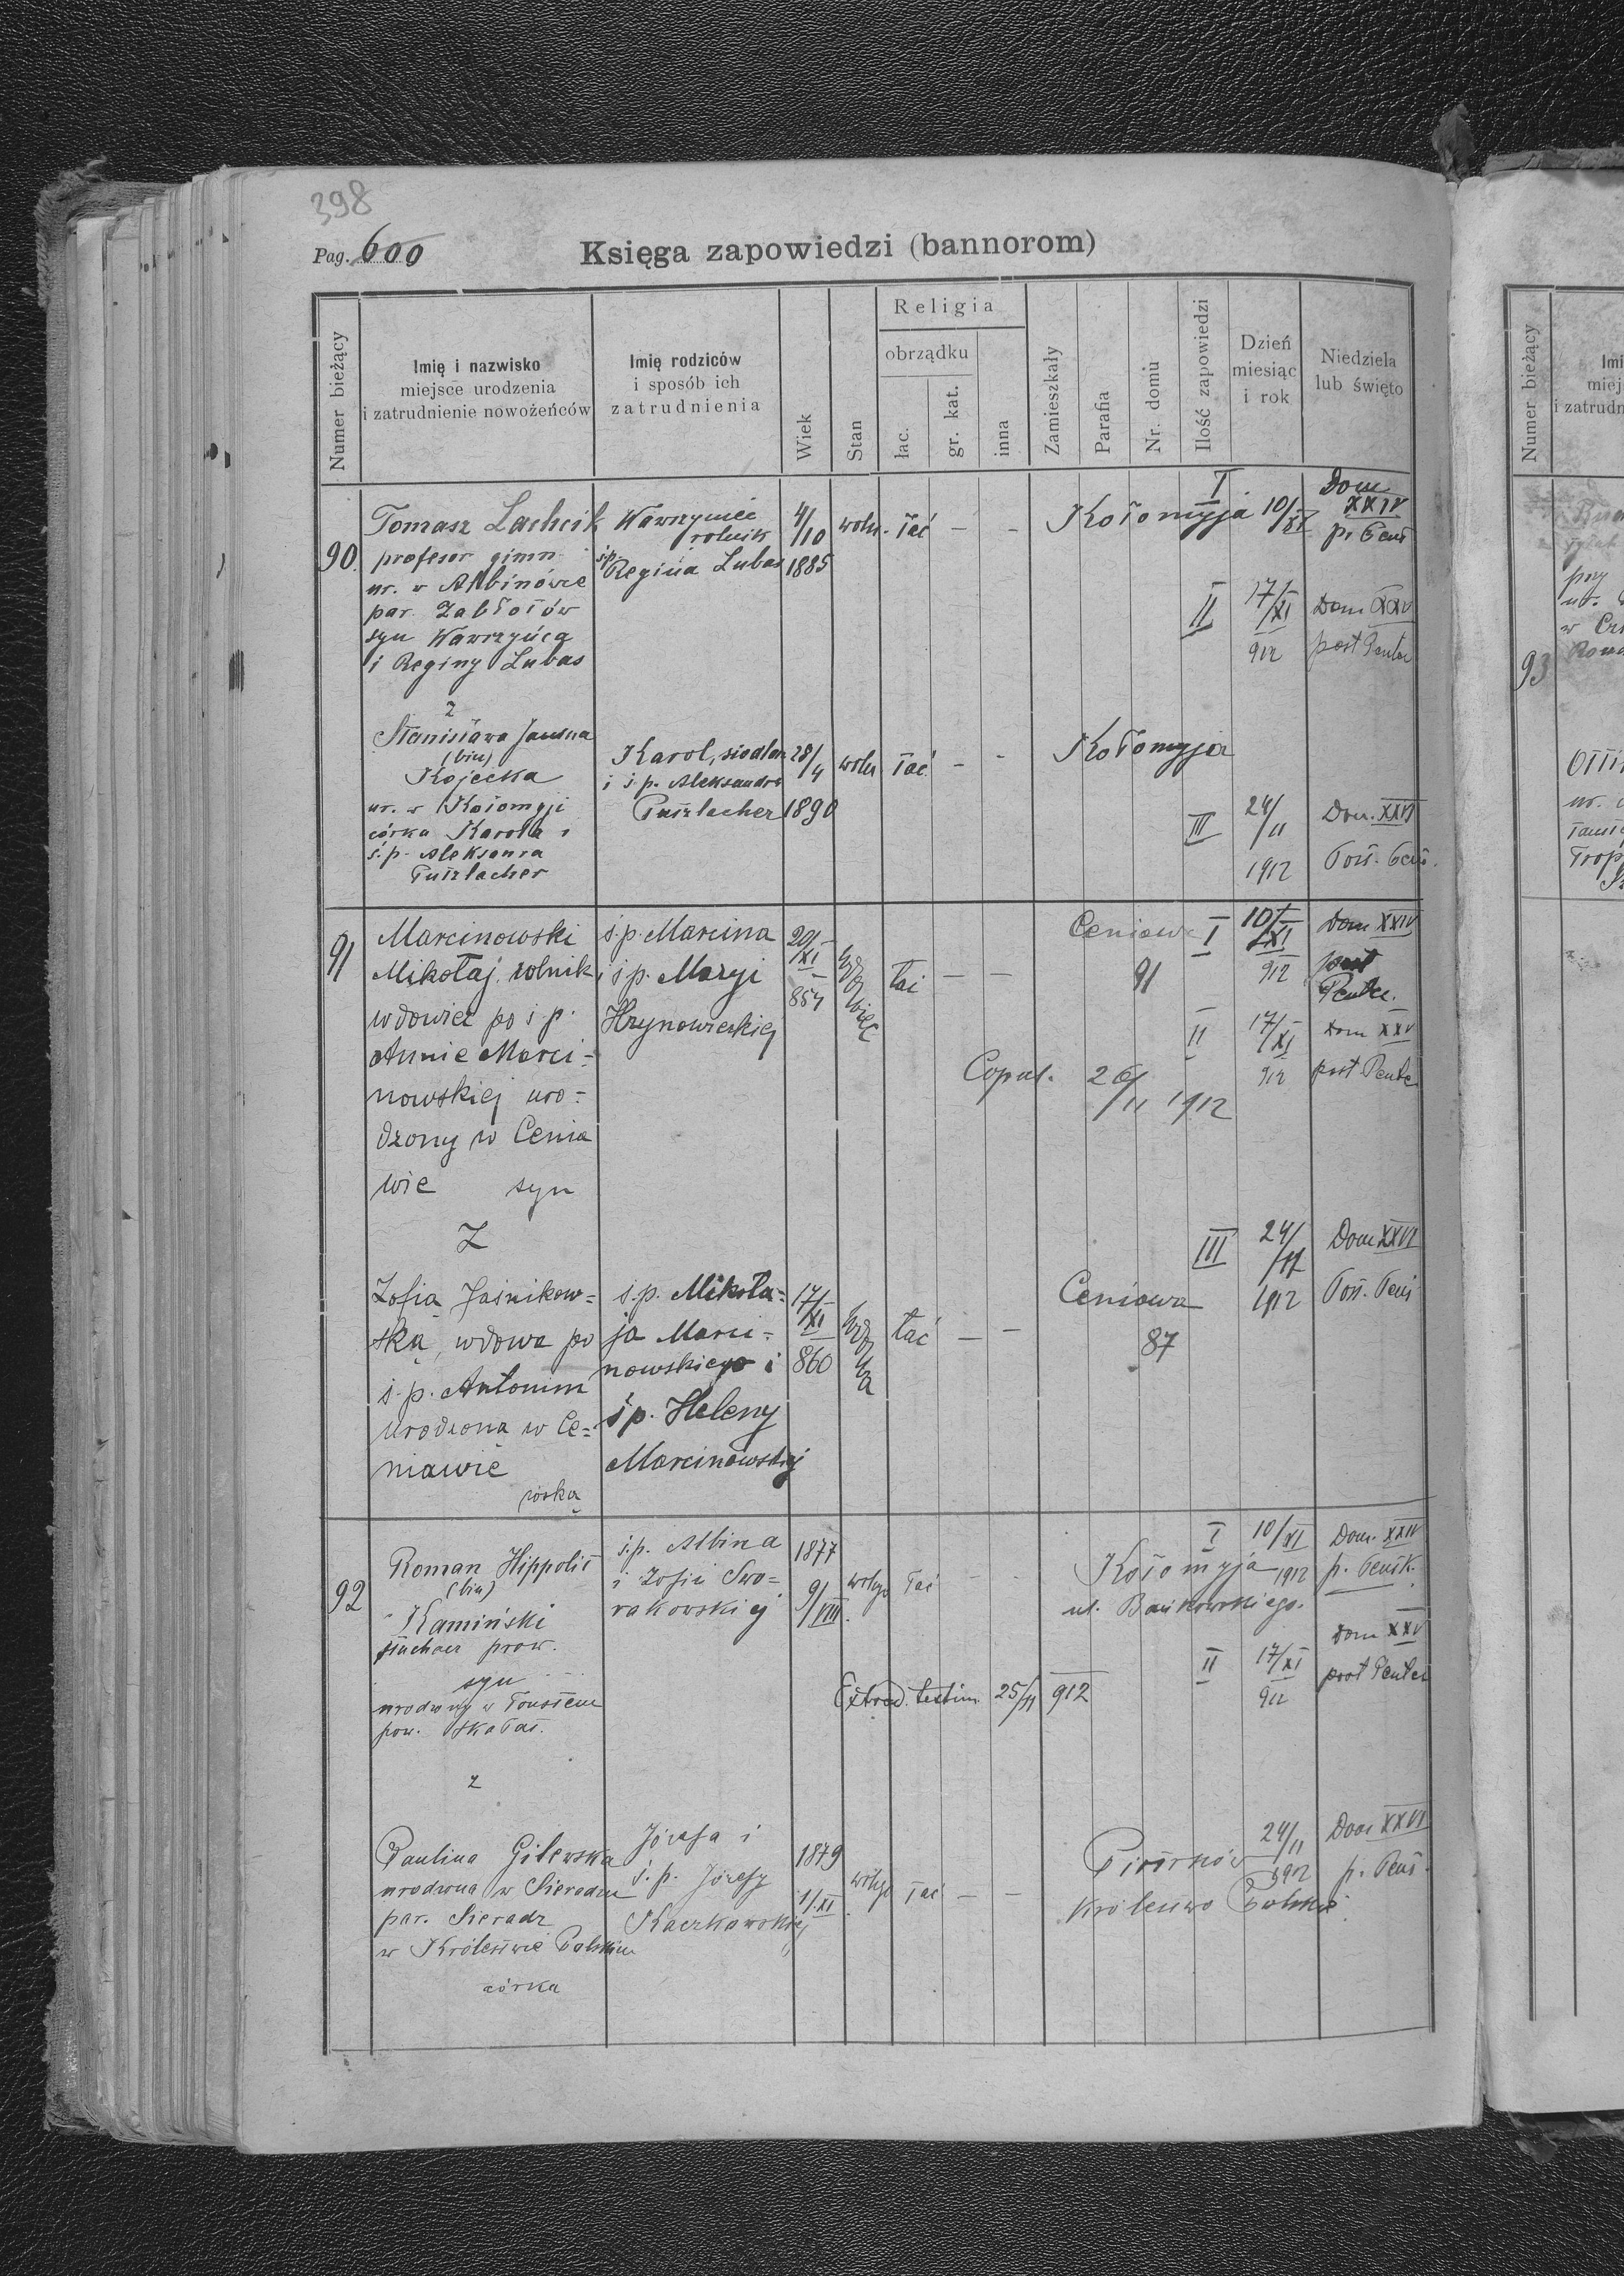 398
Pag. 600
Księga zapowiedzi (bannorom)
Numer bieżący
Imię i nazwisko
miejsce urodzenia
i zatrudnienie nowożeńców
Imię rodziców
i sposób ich
zatrudnienia
Wiek
Stan
Religia
obrządku
łac.
gr. kat.
inna
Zamieszkały
Parafia
Nr. domu
Ilość zapowiedzi
Dzień
miesiąc
i rok
Niedziela
lub święto
90.
Tomasz Lachcik
profesor gimn
ur. w Albinówce
par. Zabłotów
syn Wawrzyńca
i Reginy Lubas
Wawrzyniec
rolnik
ś.p. Regina Lubas
4/10
1885
woln. łać - -
Kołomyja
I 10/XI Dom XXIV
p. Pent
II 17/XI 912 Dom XXV
post Pentec
z
Stanisława Janina
(bin)
Kojecka
ur. w Kołomyji
córka Karola i
ś.p. Aleksandra
Karol, siodlarz
i ś.p. Aleksandra
28/4
1890
woln łać - -
Kołomyja
III 24/11 1912 Dom. XXVI
Post. Pent.
91
Marcinowski
Mikołaj, rolnik
wdowiec po ś.p.
Annie Marci=
nowskiej uro=
dzony w Cenia
wie syn
ś.p. Marcina
i ś.p. Maryi
Hrynowieckiej
20/XI
854
wdowiec
łać - -
Ceniawa
91
I 10/XI 912 Dom XXIV
post
Pentec.
II 17/XI 912 Dom XXV
post Pentec
Copul. 26/11 1912
Z
III 24/11 1912 Dom XXVI
Post. Pent
Zofia Jaśnikow=
ska, wdowa po
ś.p. Antonim
urodzona w Ce=
niawie
córka
ś.p. Mikoła=
ja Marci=
nowskiego i
ś p. Heleny
Marcinowskiej
17/XI
860
wdowa
łać - -
Ceniawa
87
92
Roman Hippolit
(bin)
Kamiński
słuchacz praw.
syn
urodzony w
pow. Skałat.
ś.p. Albina
i Zofii Swo=
rakowskiej
1877
9/VIII.
wolny łać - -
Kołomyja
ul.
I 10/XI 1912 Dom. XXIV
p. Pentk.
II 17/XI 912 Dom XXV
post Pentec
Extrad. testim. 25/11 912
z
Paulina Gilewska
urodzona w Sieradzu
par. Sieradz
w Królestwie Polskiem
córka
Józefa i
ś.p. Józefy
Kaczkowskiej
1879
1/XI
wolny łać - -
Piotrków
Królestwo Polskie
24/11 1912 Dom XXVI
p. Pent.
Numer bieżący
93